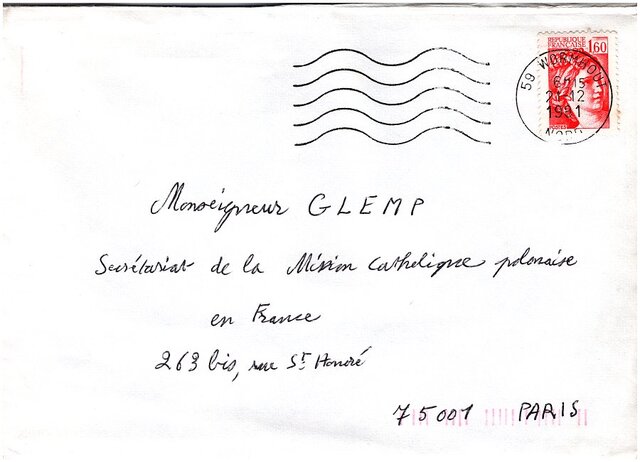 REPUBLIQUE
FRANÇAISE 1,60
59 WORMHOUT
6H15
21-12
1981
NORD
POSTES
Monseigneur GLEMP
Secrétariat de la Mission Catholique polonaise
en France
263 bis, rue St Honoré
75001 PARIS